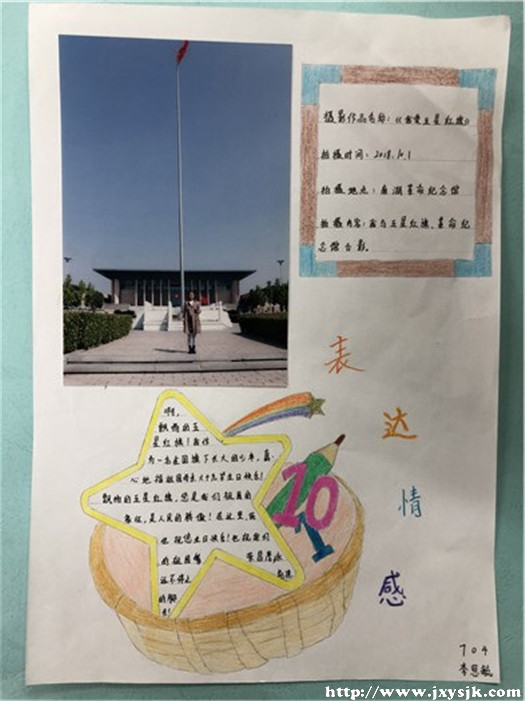 摄影作品名称：《我爱五星红旗》
拍摄时间：2018.10.1
拍摄地点：南湖革命纪念馆
拍摄内容：我与五星红旗、革命纪
念馆合影。
表
达
情
感
啊，
飘扬的五
星红旗！我作
为一名在国旗下长大的少年，真
心地 祖国母亲六十九岁生日快乐！
飘扬的五星红旗，您是我们祖国的
象征，是人民的骄傲！在这里，我
也祝您生日快乐！也祝我们
的祖国繁荣昌盛，永
远不停止
的
10
1
704
李思
http://www.jxysjk.com